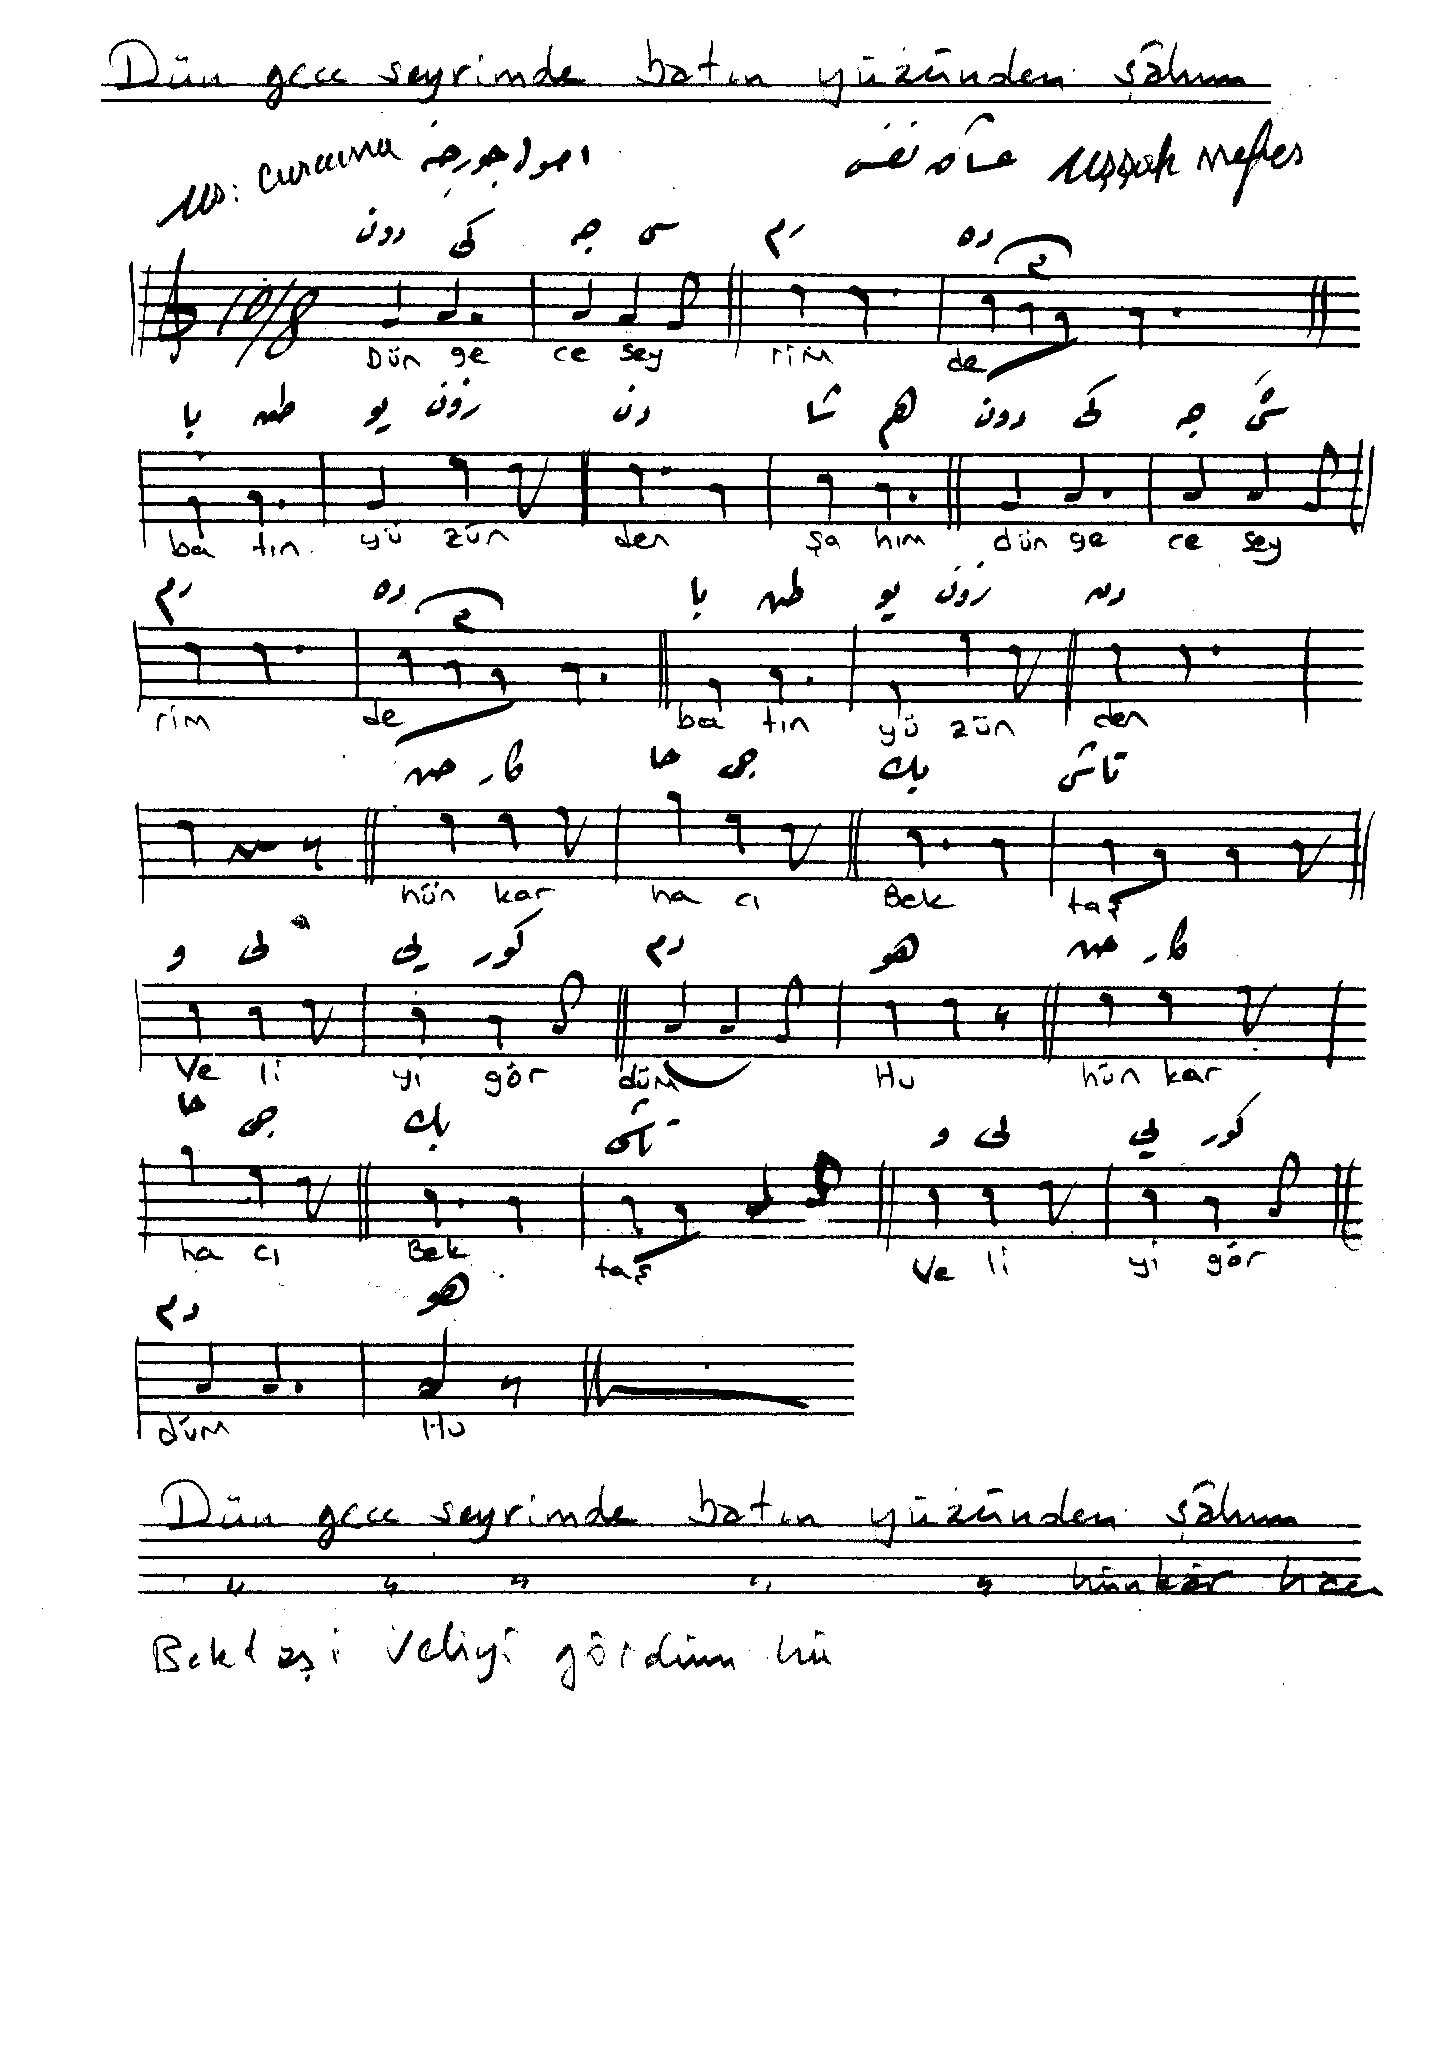 Dün gece seyrimde batın yüzünden şâhım
Us: curcuna اصول جورجنه عشاق نفس Uşşak nefes
دون کی جه سی رم ده
10/8
2
Dün ge ce sey rim de
با طن یو زون دن شا هم دون کی جه سی
ba tın yü zün den şa hım dün ge ce sey
رم ده با طن یو زون دن
2
rim de ba tın yü zün den
حن کار حا جی بك تاش
hün kar ha cı Bek taş
و لی یی کور دم هو حن کار
Ve li yi gör düm Hu hün kar
حا جی بك تاش و لی یی کور
ha cı Bek taş Ve li yi gör
دم هو
düm Hu
Dün gece seyrimde batın yüzünden şâhım
" " " " " hünkâr hacı
Bektaşi Veliyi gördüm hü